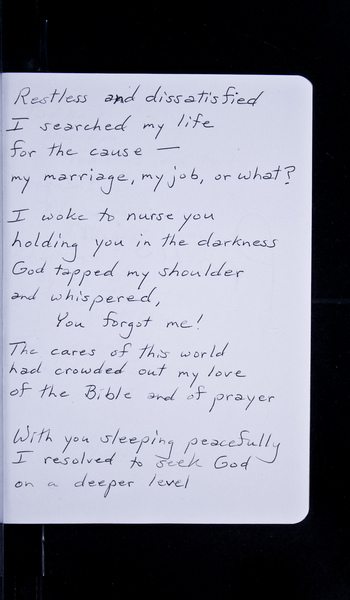 Restless and dissatisfied
I searched my life
for the cause —
my marriage, my job, or what?
I woke to nurse you
holding you in the darkness
God tapped my shoulder
and whispered,
You forgot me!
The cares of this world
had crowded out my love
of the Bible and of prayer
With you sleeping peacefully
I resolved to seek God
on a deeper level